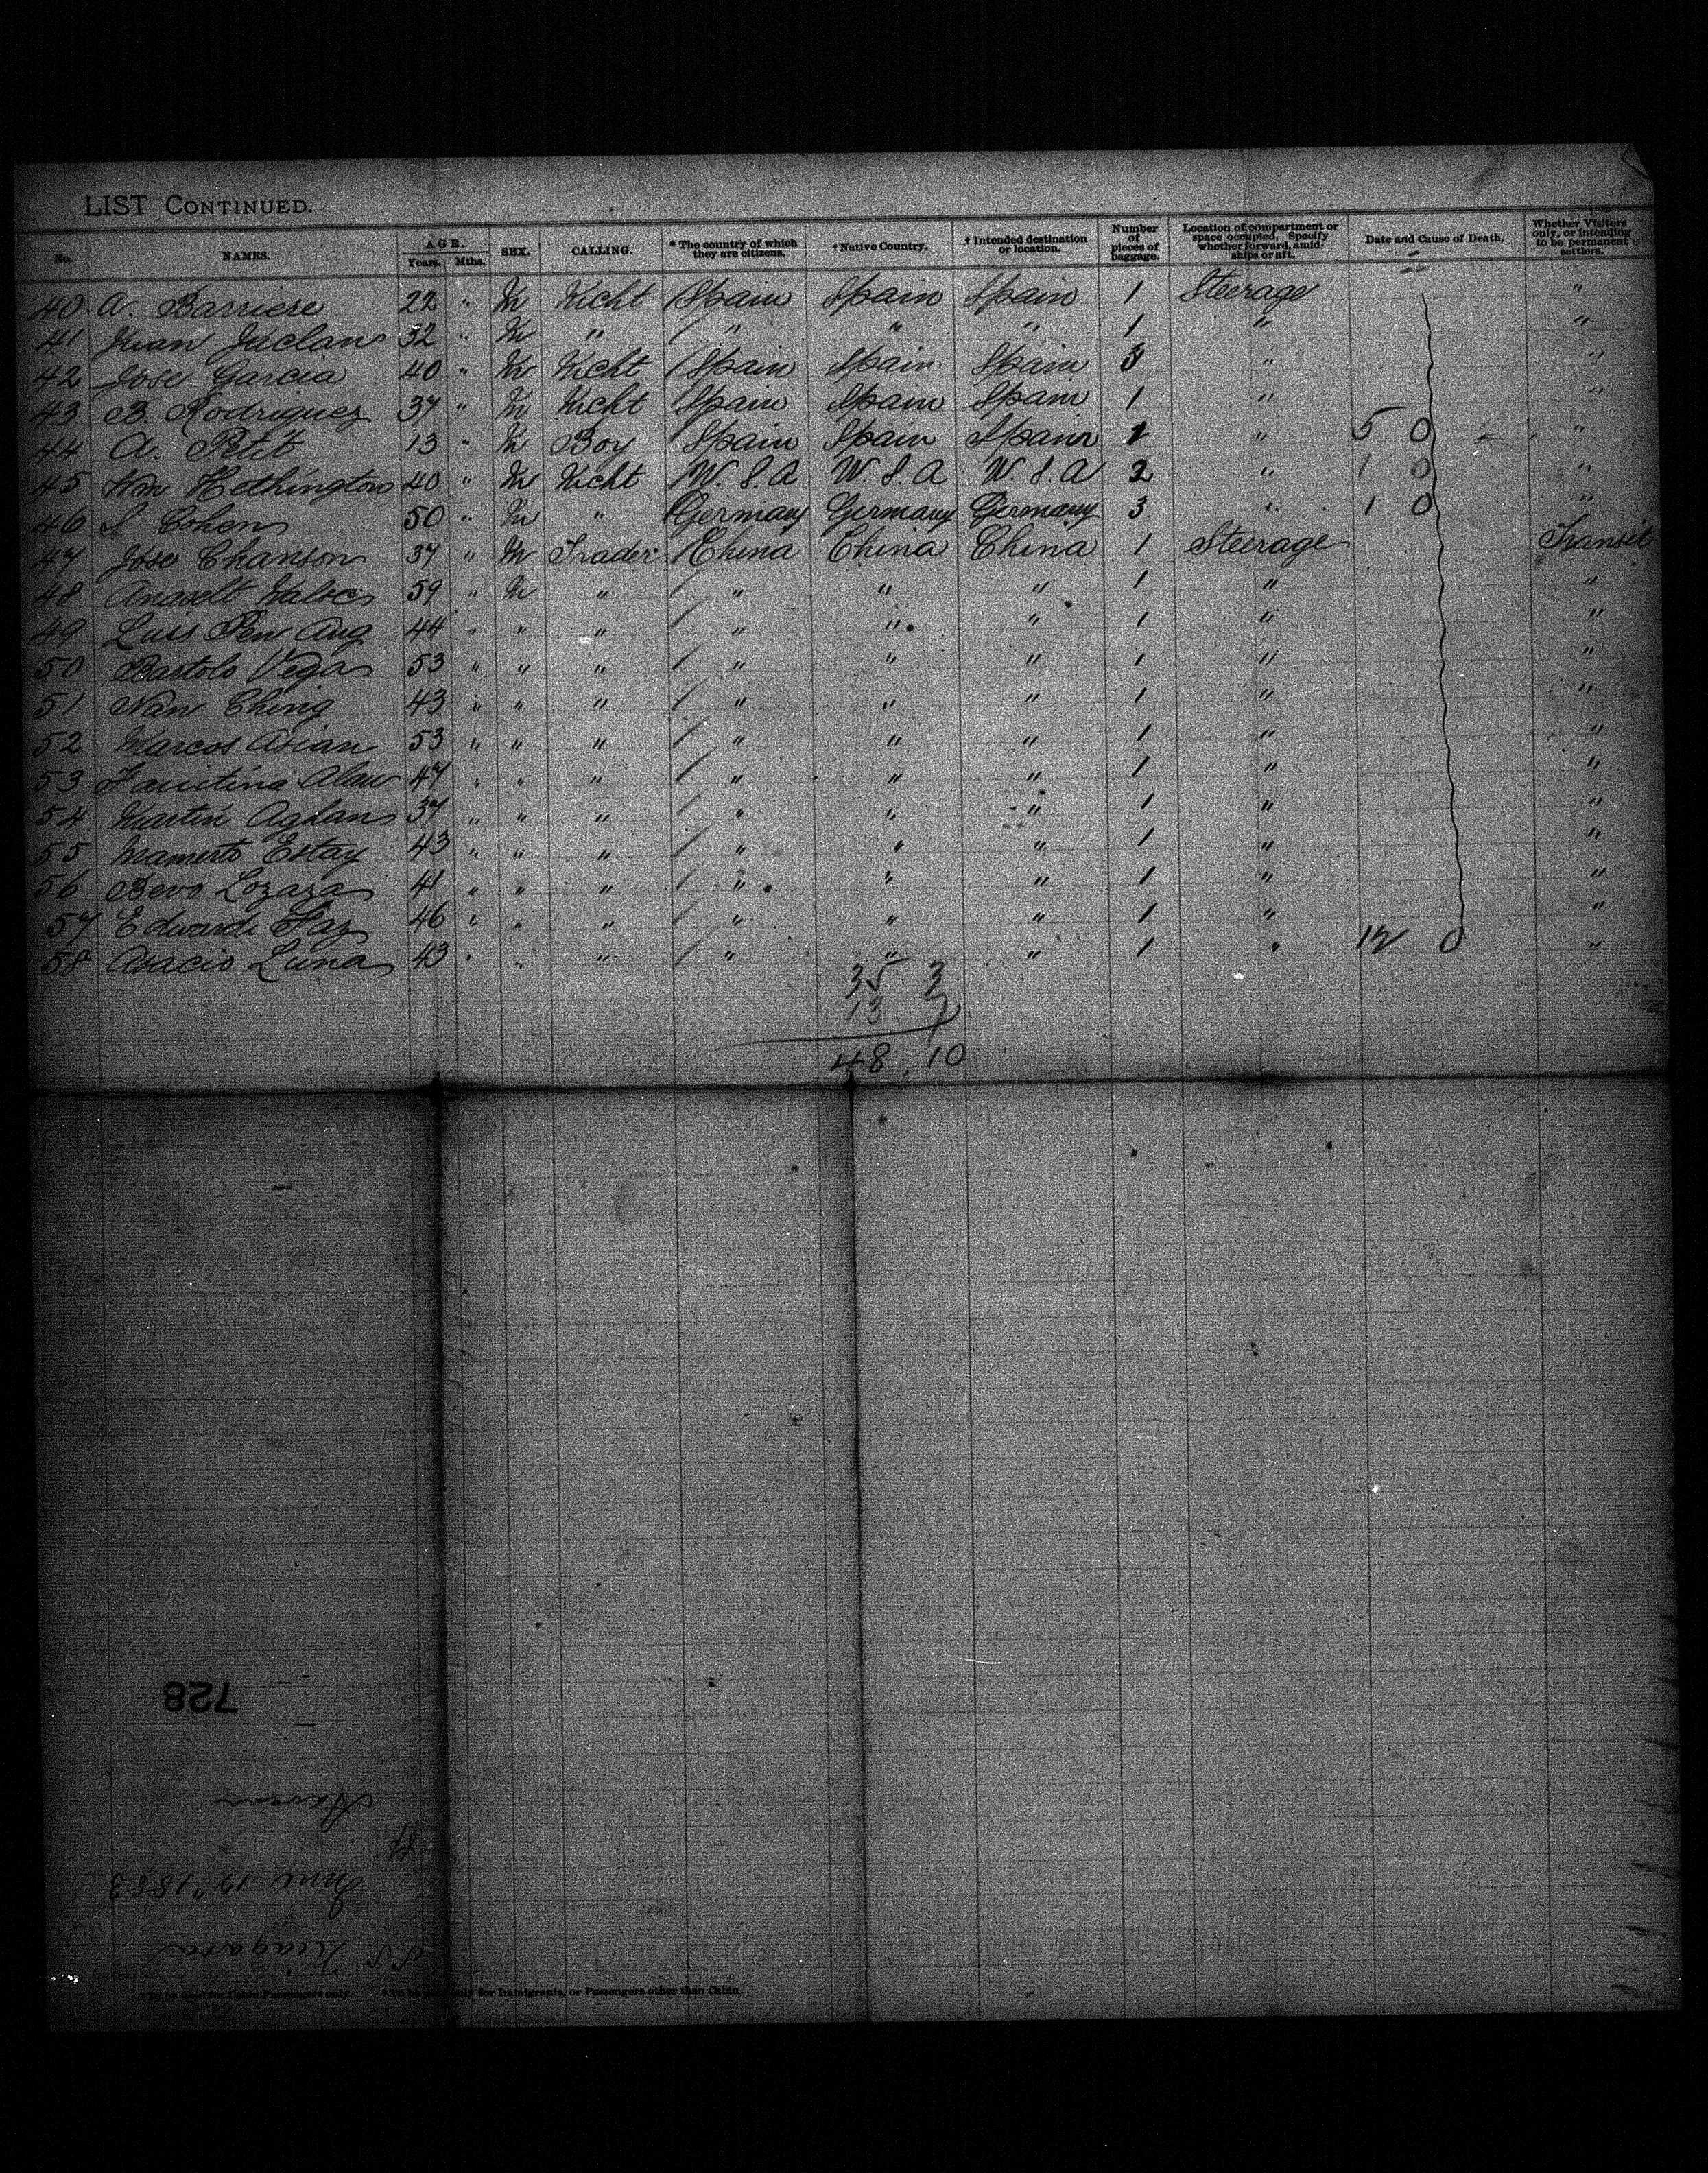 LIST CONTINUED.
No. NAMES. AGE. Years. Mths. SEX. CALLING. * The country of which they are citizens. † Native Country. † Intended destination or location. Number of pieces of baggage. Location of compartment or space occupied. Specify whether forward, amidships or aft. Date and Cause of Death. Whether Visitors only, or intending to be permanent settlers.
40 A. Barriere 22 " M Mcht Spain Spain Spain 1 Steerage "
41 Juan 32 " M " " " " 1 " "
42 Jose Garcia 40 " M Mcht Spain Spain Spain 3 " "
43 B. Rodriguez 37 " M Mcht Spain Spain Spain 1 " "
44 A. Petit 13 " M Boy Spain Spain Spain 1 " 5 0 "
45 Wm Hethington 40 " M Mcht U.S.A U.S.A U.S.A 2 " 1 0 "
46 S Cohen 50 " M " Germany Germany Germany 3 " 1 0 "
47 Jose Chanson 37 " M Trader China China China 1 Steerage Transit
48 59 " M " " " " 1 " "
49 Luis Pen Aug 44 " " " " " " 1 " "
50 Bartolo Vega 53 " " " " " " 1 " "
51 Nan Ching 43 " " " " " " 1 " "
52 Marcos Asian 53 " " " " " " 1 " "
53 Faustina Alau 47 " " " " " " 1 " "
54 Martin 37 " " " " " " 1 " "
55 Mamerto Estay 43 " " " " " " 1 " "
56 Bevo Lozaza 41 " " " " " " 1 " "
57 Edwardi Faz 46 " " " " " " 1 " "
58 Luna 43 " " " " " " 1 " 12 0 "
35 3
13 7
48 10
728
Havana
June 12" 1883
S.S. Niagara
* To be used for Cabin Passengers only. † To be used only for Immigrants, or Passengers other than Cabin